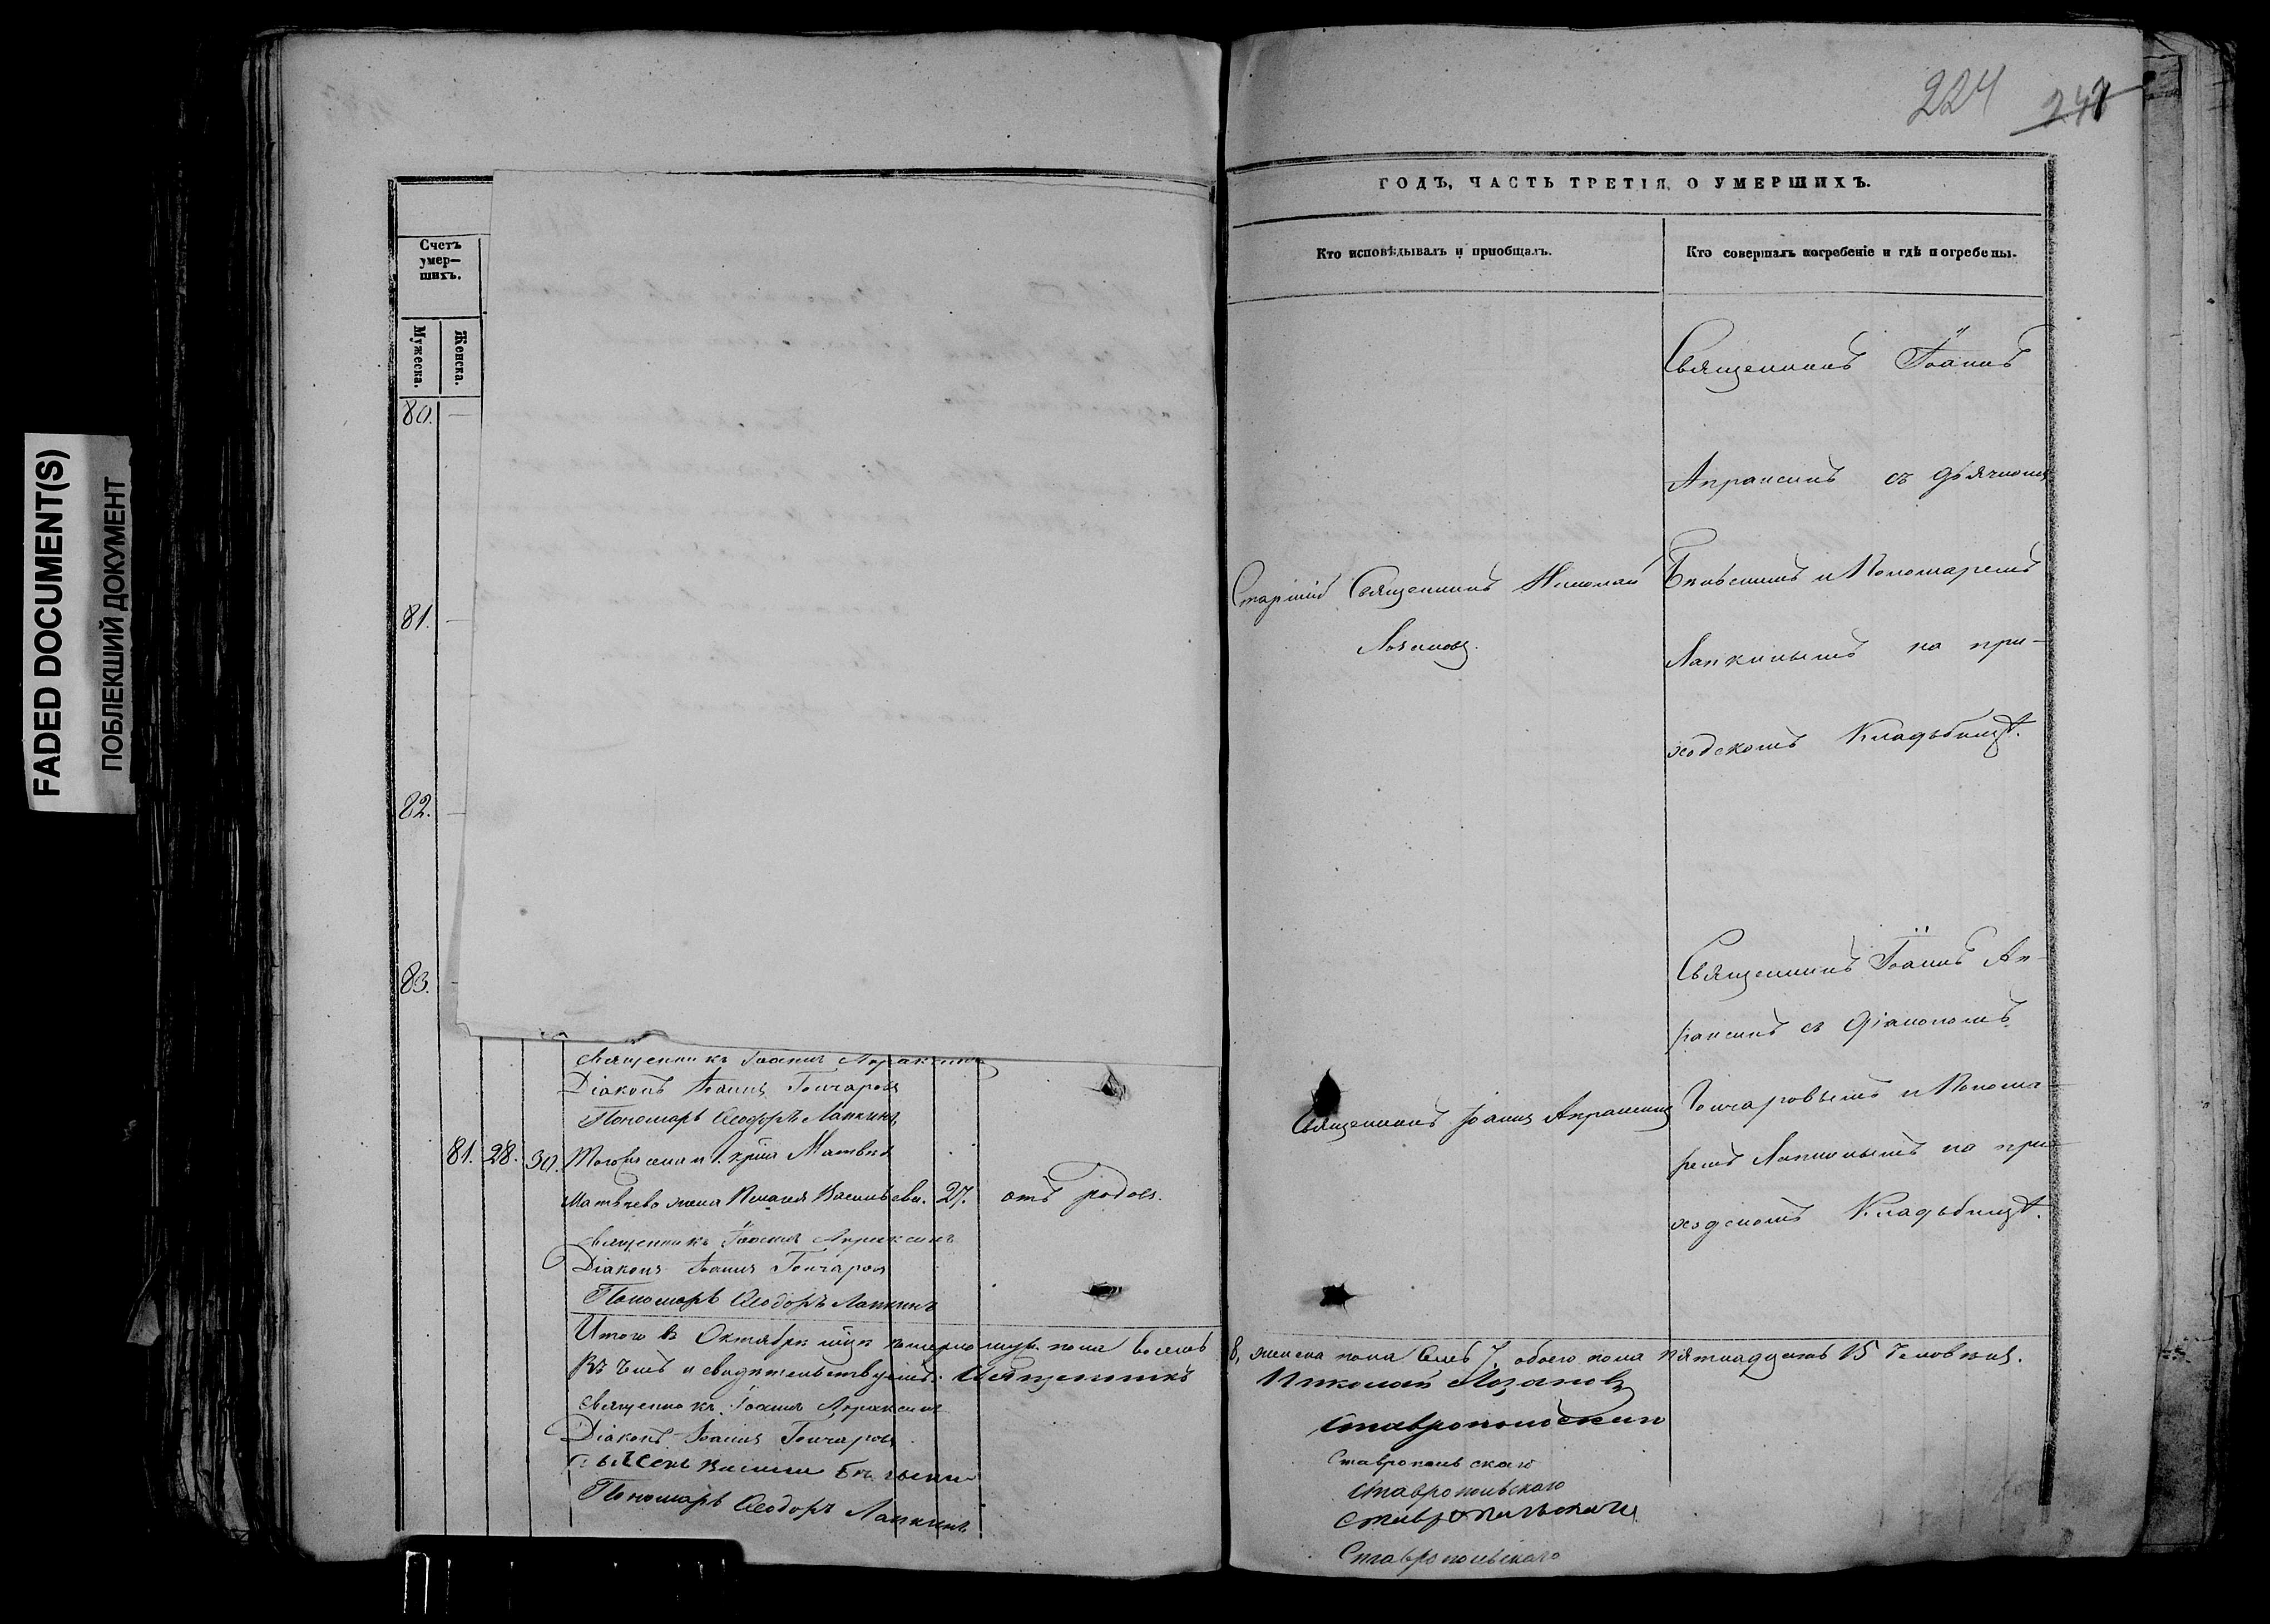 FADED DOCUMENT(S)
ПОБЛЕКШИЙ ДОКУМЕНТ
224
247
ГОДЪ, ЧАСТЬ ТРЕТІЯ, О УМЕРШИХЪ.
Счетъ
умер—
шихъ.
Мужеска.
Женска.
Кто исповѣдывалъ и пріобщалъ.
Кто совершалъ погребеніе и гдѣ погребены.
80.
81.
82.
83.
Старшій Священникъ Николай
Лозановъ.
Священникъ Іоаннъ
Апраксинъ съ дьячкомъ
и Пономаремъ
Лапкинымъ на при-
ходскомъ Кладьбищѣ.
Священникъ Іоаннъ Ап-
раксинъ съ Діакономъ
Гончаровымъ и Понома-
ремъ Лапкинымъ на при-
ходскомъ Кладьбищѣ.
Священникъ Іоаннъ Апраксинъ
Священникъ Іоаннъ Апраксинъ
Діаконъ Іоаннъ Гончаровъ
Пономарь Ѳеодоръ Лапкинъ
81. 28. 30. Матвѣя
Матвѣева жена Васильева. 27. отъ родовъ.
Священникъ Іоаннъ Апраксинъ
Діаконъ Іоаннъ Гончаровъ
Пономарь Ѳеодоръ Лапкинъ
Итого въ Октябрѣ м҃цѣ померло муж. пола восемь 8, женска пола семь 7, обоего пола пятнадцать 15 человѣкъ.
Въ чемъ и свидѣтельствуемъ: Священникъ Николай Лозановъ
Священникъ Іоаннъ Апраксинъ
Діаконъ Іоаннъ Гончаровъ
Василій
Пономарь Ѳеодоръ Лапкинъ
Ставропольскаго
Ставропольскаго
Ставропольскаго
Ставропольскаго